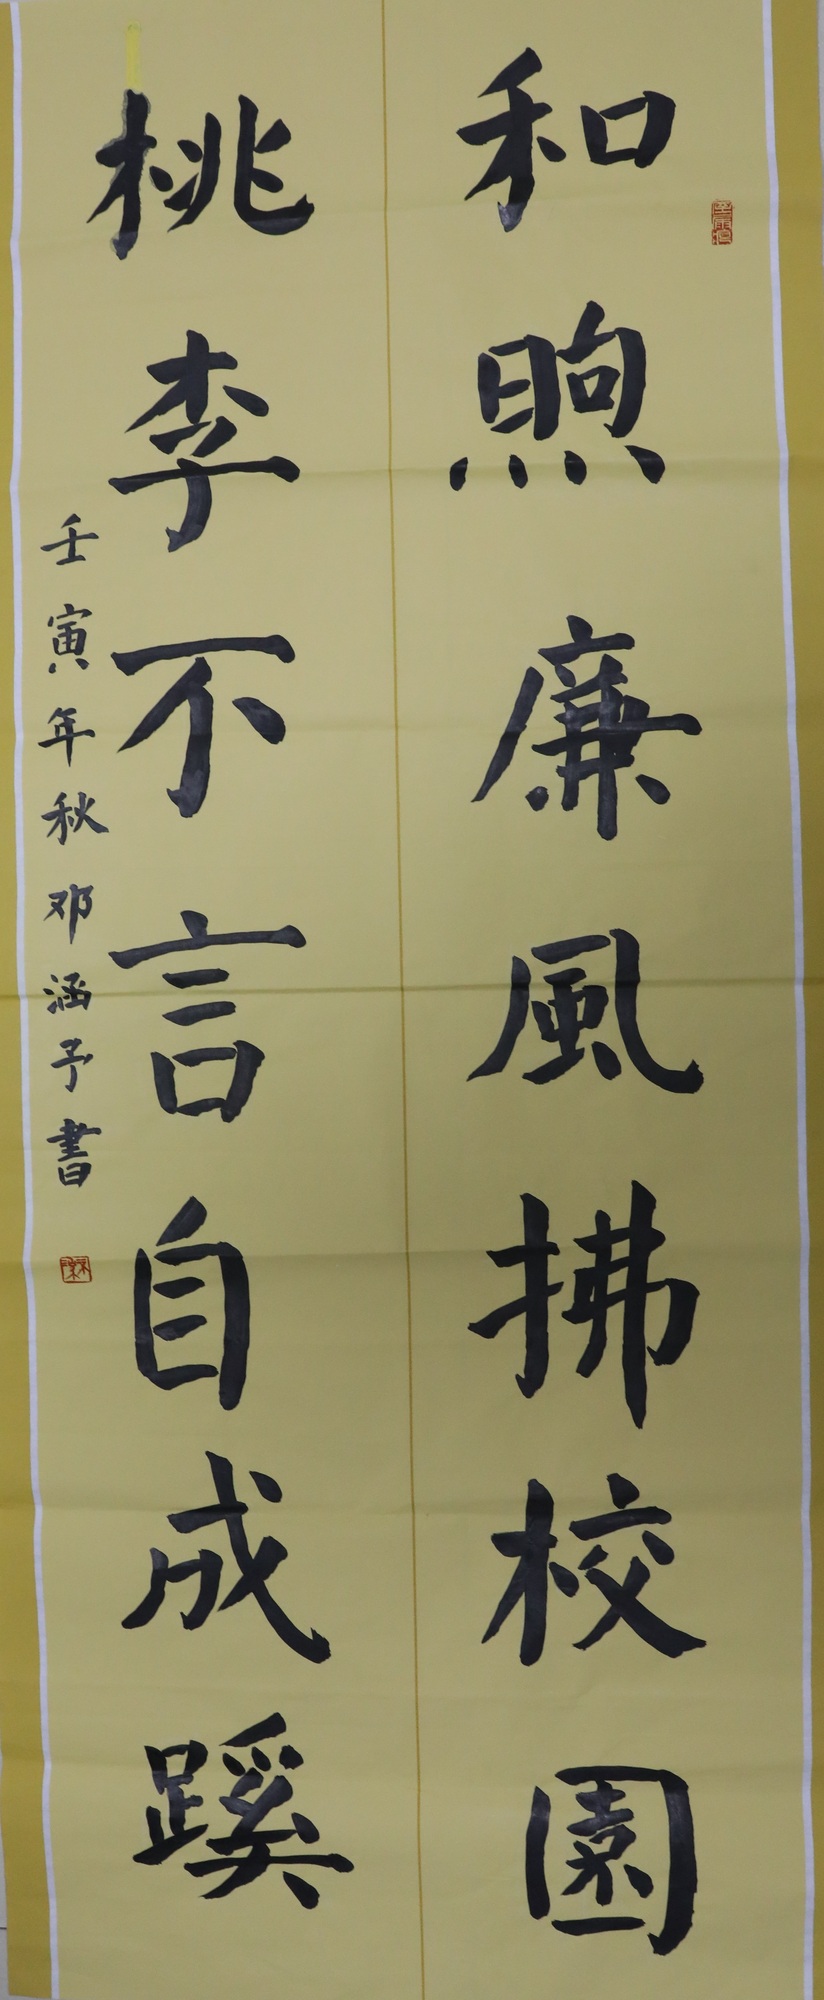 和煦廉風拂校園
桃李不言自成蹊
壬寅年秋邓涵予書